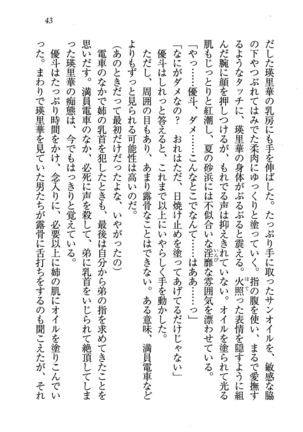 43
だした瑛里華の乳房にも手を伸ばした。たっぷり手に取ったサンオイルを、敏感な脇
の下やつぶれてはみでた柔肉にゆっくりと塗っていく。指の腹を使い、まるで愛撫す
るようなタッチに、瑛里華の身体がぶるぶると震える。火照った表情を隠すように組
んだ腕に顔を押しつけるが、もれでる声は抑えきれていない。オイルを塗られて光る
肌もじっとりと紅潮し、夏の砂浜には不似合いな淫靡な雰囲気を漂わせている。
「やっ……優斗、ダメ……こんなとこでなんて……はああ……っ」
「なにがダメなの？　おれはただ、日焼け止めを塗ってあげてるだけじゃない」
優斗はしれっと答えると、これまで以上にいやらしく手を動かした。
ただし、周囲の目もあり、あまり露骨なことはできない。ある意味、満員電車など
よりもずっと注目される可能性は高いのだ。
（あのときだって最初だけだったよな、いやがったの）
電車のなかで姉の乳首を犯したときも、最後は自分から弟の指を求めてきたことを
思いだす。満員電車のなか、必死に声を殺して、弟に乳首をいじられて絶頂してしま
った。瑛里華の痴態は、今でもはっきりと覚えている。
優斗はたっぷり時間をかけ、念入りに、必要以上に姉の肌にオイルを塗りこんでい
った。まわりで瑛里華を見ていた男たちが露骨に舌打ちをするのも聞こえたが、それ